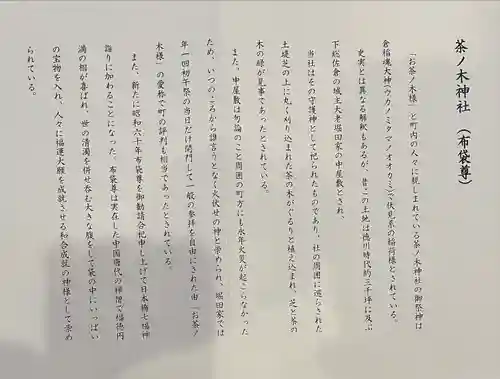 茶ノ木神社 (布袋尊)
「お茶ノ木様」と町内の人々に親しまれている茶ノ木神社の御祭神は
倉稲魂大神(ウカノミタマノオオカミ)で伏見系の稲荷様とされている。
史実とは異なる解釈もあるが、昔この土地は徳川時代約三千坪に及ぶ
下総佐倉の城主大老堀田家の中屋敷とされ、
当社はその守護神として祀られたものであり、社の周囲に巡らされた
土堤芝の上に丸く刈り込まれた茶の木がぐるりと植え込まれ、芝と茶の
木の緑が見事であったとされている。
また。中屋敷は勿論のこと周囲の町方にも永年火災が起こらなかった
ため、いつのころから誰言うとなく火伏せの神と崇められ、堀田家では
年一回初午祭の当日だけ開門して一般の参拝を自由にされた由「お茶ノ
木様」の愛称で町の評判も相当であったとされている。
また、新たに昭和六十年布袋尊を御勧請合祀申し上げて日本橋七福神
詣りに加わることになった。布袋尊は実在した中国唐代の禅僧で福徳円
満の相が喜ばれ、世の清濁を併せ呑む大きな腹をして袋の中にいっぱい
の宝物を入れ、人々に福運大願を成就させる和合成就の神様として崇め
られている。